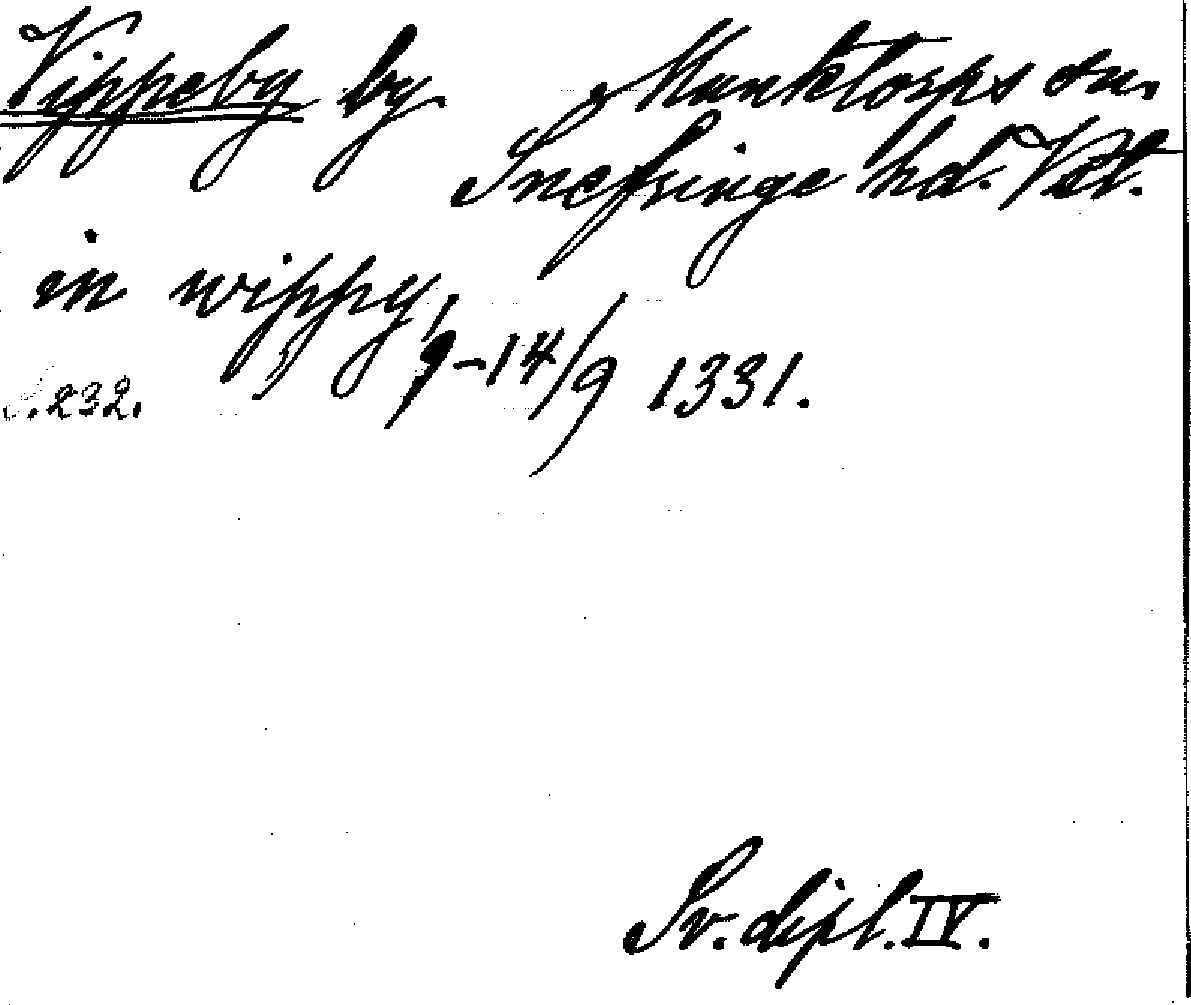 Vippeby by Munktorps sn.
Snefringe hd. Vstl.
in wippy,
S. 232. 9-14/9 1331.
Sv. dipl. IV.